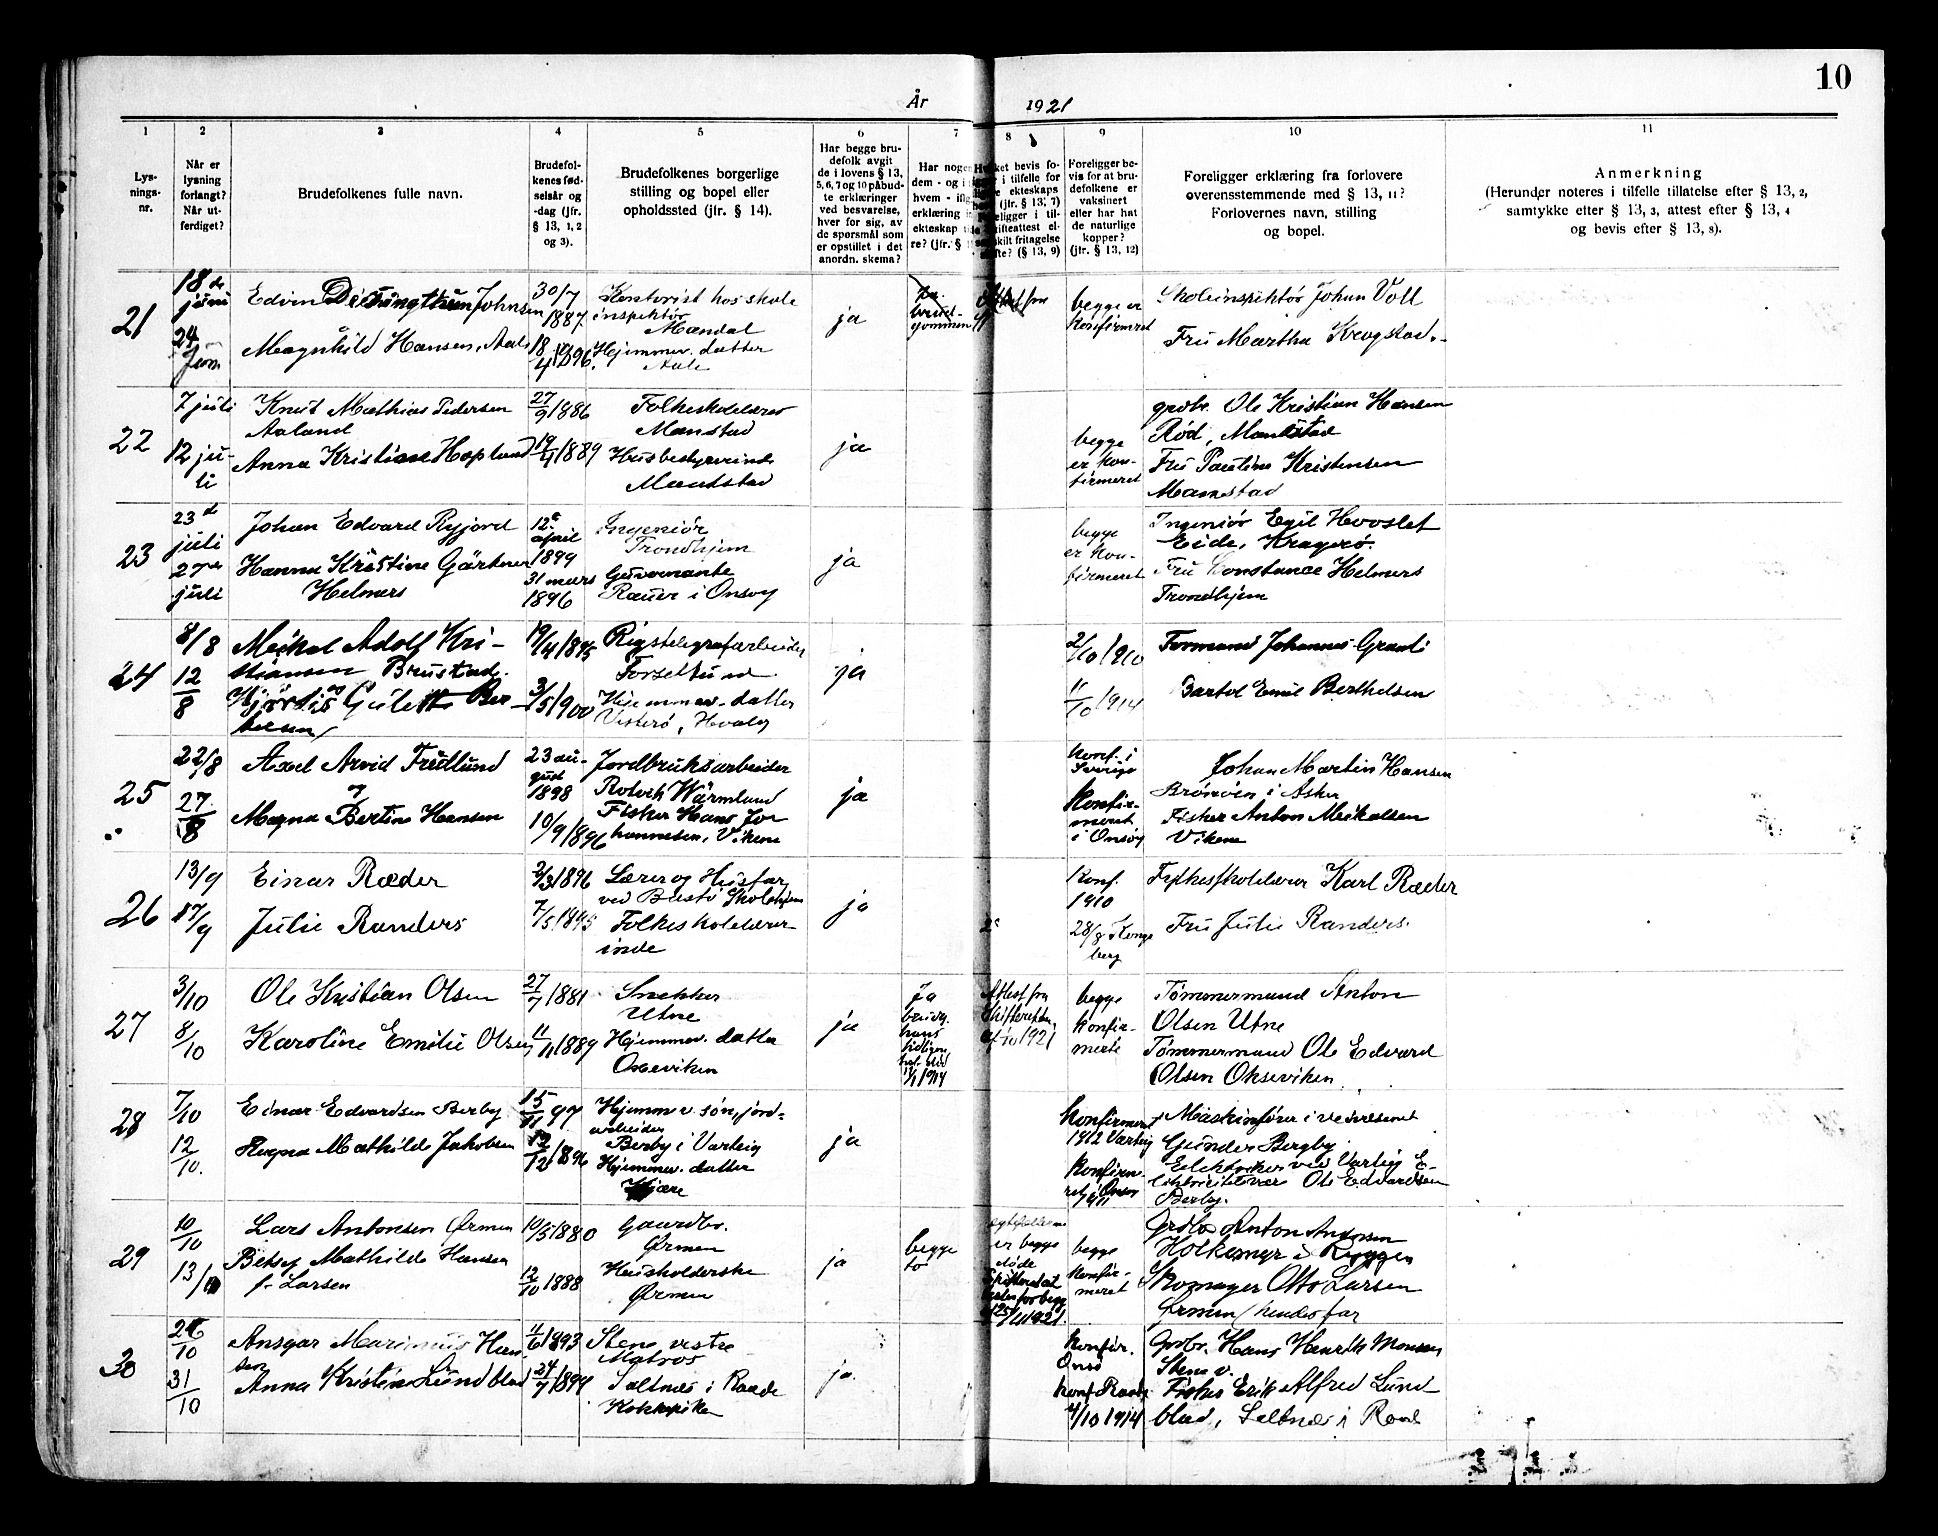 10
År 1921
1
2
3
4
5
6
7
8
9
10
11
Lys-
nings-
nr.
Når er
lysning
forlangt?
Når ut-
ferdiget?
Brudefolkenes fulle navn.
Brudefol-
kenes fød-
selsår og
-dag (jfr.
§ 13, 1, 2
og 3).
Brudefolkenes borgerlige
stilling og bopel eller
opholdssted (jfr. § 14).
Har begge bru-
defolk avgit
de i lovens § 13,
5, 6, 7 og 10 påbud-
te erklæringer
ved besvarelse,
hver for sig, av
de spørsmål som
er opstillet i det
anordn. skema?
Har nogen
dem - og i
hvem - ifl.
erklæring
ekteskap
re? (jfr. §
bevis fo-
i tilfelle for
ekteskaps
(jfr. § 13, 7)
i til-
skifteattest el-
fritagelse
(§ 13, 9)
Foreligger be-
vis for at bru-
defolkene er
vaksinert
eller har hat
de naturlige
kopper?
(jfr. § 13, 12)
Foreligger erklæring fra forlovere
overensstemmende med § 13, 11?
Forlovernes navn, stilling
og bopel.
Anmerkning
(Herunder noteres i tilfelle tillatelse efter § 13, 2,
samtykke efter § 13, 3, attest efter § 13, 4
og bevis efter § 13, 8).
21
18de
juni
24
Juni
Edvin Johnsen
Magnhild Hansen, Aale
30/7
1887
18/4 1896
Kontorist hos skole
inspektør
Mandal
Hjemmev. datter
Aale
ja
brud-
gommen
begge er
konfirmert
Skoleinspektør Johan Voll
Fru Martha Krogstad
22
7 juli
12 ju-
li
Knut Mathias Pedersen
Aaland
Anna Kristiane Haplund
27/9 1886
19/4 1889
Folkeskolelærer
Manstad
Husbestyrerinde
Mandstad
ja
begge
er kon-
firmeret
grdbr. Ole Kristian Hansen
Rød, Manstad
Fru Pauline Kristensen
Manstad
23
23d
juli
27de
juli
Johan Edvard Ryjord
Hanna Kristine Gärtner
Helmers
12te
april
1899
31 mars
1896
Ingeniør
Trondhjem
Guvernante
Rauer i Onsøy
ja
begge
er kon-
firmeret
Ingeniør Egil Hovslet
Eide, Kragerø.
Fru Constance Helmers
Trondhjem
24
8/8
12/8
Meikal Adolf Kri-
stiansen Brustad
Hjørdis Ber-
telsen
19/4 1895
3/5 1900
Rigstelegrafarbeider
Forsetlund
Hjemmev. datter
Vesterø, Hvaler
ja
2/10 1910
11/10 1914
Formand Johannes Graali
Bartol Emil Berthelsen
25
22/8
27/8
Axel Arvid Fridlund
og
Magna Bertine Hansen
23 au-
gust
1898
10/9 1896
Jordbruksarbeider
Wärmland
Fisker Hans Jo-
hannesen, Viken
ja
konf. i
Sverige
konfir-
meret
i Onsøy
Johan Martin Hansen
Brønøen i Asker
Fisker Anton Meikalsen
Vikene
26
13/9
17/9
Einar Ræder
Julie Randers
2/3 1896
7/5 1895
Lærer og Husfar
ved Bastø Skolehjem
Folkeskolelærer-
inde
ja
konf.
1910
28/8 Kongs
berg
Fylkesskolelærer Karl Ræder
Fru Julie Randers.
27
3/10
8/10
Ole Kristian Olsen
Karoline Emilie Olsen
27/7 1881
11/11 1889
Snekker
Utne
Hjemmev. datter
Oxeviken
ja
Ja
brudg.
hans
tidligere
hst. død
1914
Attest fra
skifteretten
1921
begge
konfir-
merte
Tømmermand Anton
Olsen Utne
Tømmermand Ole Edvard
Olsen Okseviken
28
7/10
12/10.
Einar Edvardsen Berby
Ragna Mathilde Jakobsen
15/11 97
12/12 1896
Hjemmev. søn, jord-
arbeider
Berby i Varteig
Hjemmev. datter
Kjære
ja
Konfirmeret
1912 Varteig
konfirme-
ret i Onsø
1911
Maskinfører i vedreiseriet
Gunder Bergby
Elektriker ved Varteig E-
lektricitetsverk Ole Edvardsen
Berby.
29
10/10
13/10
Lars Antonsen Ørmen
Betsy Mathilde Hansen
f. Larsen
10/5 1880
12/10 1888
Gaardbr.
Ørmen
Husholderske
Ørmen
ja
begge
to
er begge
døde
1921
begge
konfir-
meret
Grdbr. Anton Andersen
Holkemyr i Ryggen
Skomager Otto Larsen
Ørmen (hendes far
30
26/10
31/10
Ansgar Marinius Han-
sen
Anna Kristine Lundblad
11/6 1893
24/7 1899
Stene vestre
Matros
Saltnes i Raade
Kokkepike
ja
konfir.
Onsø
konf. Raade
4/10 1914
Grdbr. Hans Henrik Monsen
Stene v.
Fisker Erik Alfred Lund
blad, Saltnes i Raad